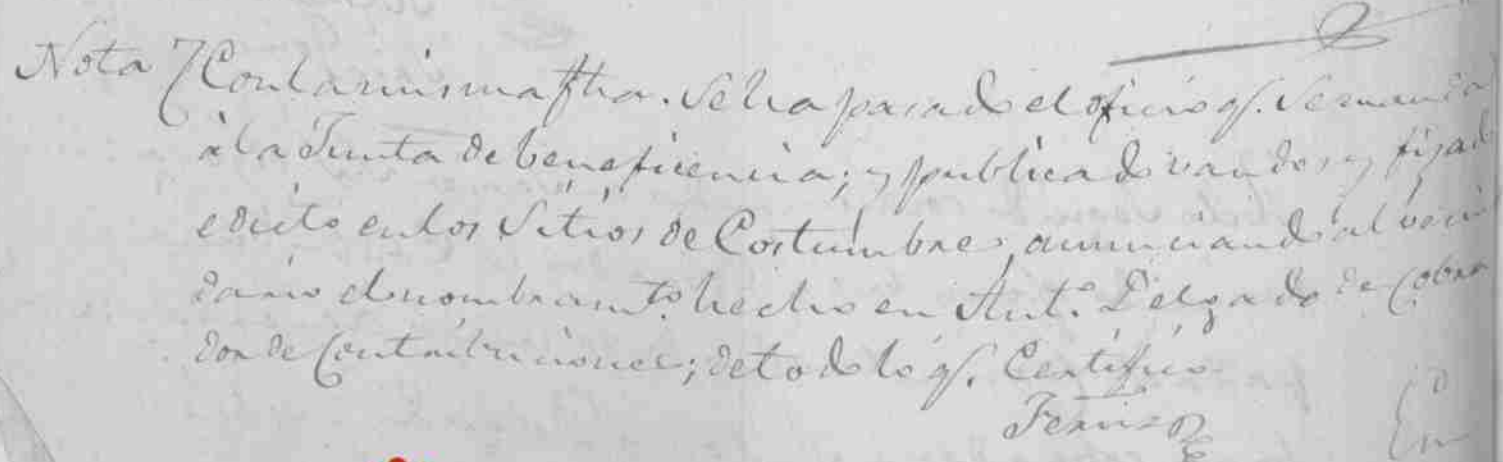 Nota 7 Con la misma fha. Se ha pasado el oficio q. Se manda
à la Junta de beneficencia; y publicado vandos y fijado
edicto en los Sitios de Costumbre, anunciando al veci
dario el nombramto. hecho en Anto. Delgado de Cobra
dor de Contribuciones; de todo lo q. Certifico